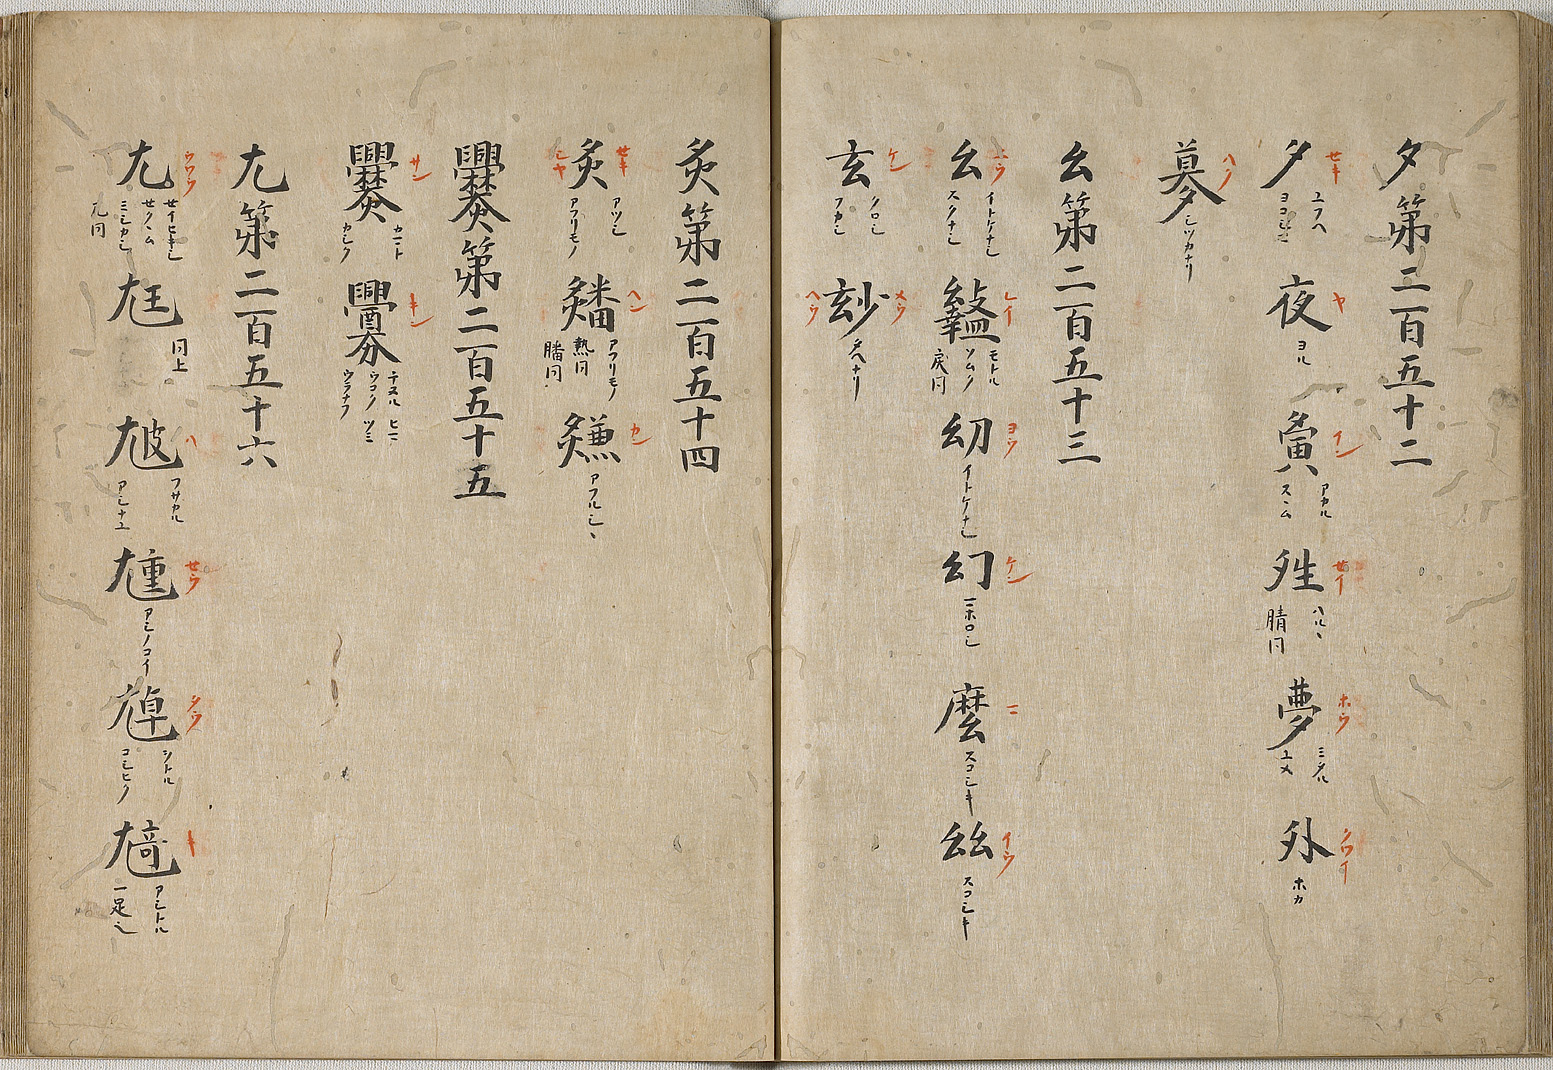 夕第二百五十二
夕 セキ ユフヘ ヨコシマ
夜 ヤ ヨル
夤 イン アカル スヽム
夝 セイ ハルヽ 晴同
夢 ホウ ミタル ユメ
外 クワイ ホカ
夣 ヘク シツカナリ
幺第二百五十三
幺 エウ イトケナシ スクナシ
盭 レイ モトル ソムク 戻同
幼 ヨウ イトケナシ
幻 ケン マホロシ
麼 ニ スコシキ
𢆶 イウ スコシキ
玄 ケン クロシ フカシ
玅 メウ ヘウ タヘナリ
炙第二百五十四
炙 セキ シヤ アツシ アフリモノ
䊩 ヘン アフリモノ 熱同 膰同
㷮 カン アフルシヽ
爨第二百五十五
爨 サン カマト カシク
釁 キン チヌル ヒマ ウコク ツミ ウラナフ
尢第二百五十六
尢 ワウ セイヒキシ セクヽム ミシカシ 尢同
尪 同上
尳 ハ フサカル アシナエ
尰 セウ アシノコイ
𡯴 タウ シトル コシヒク
𡯺 キ アシトル 一足シ